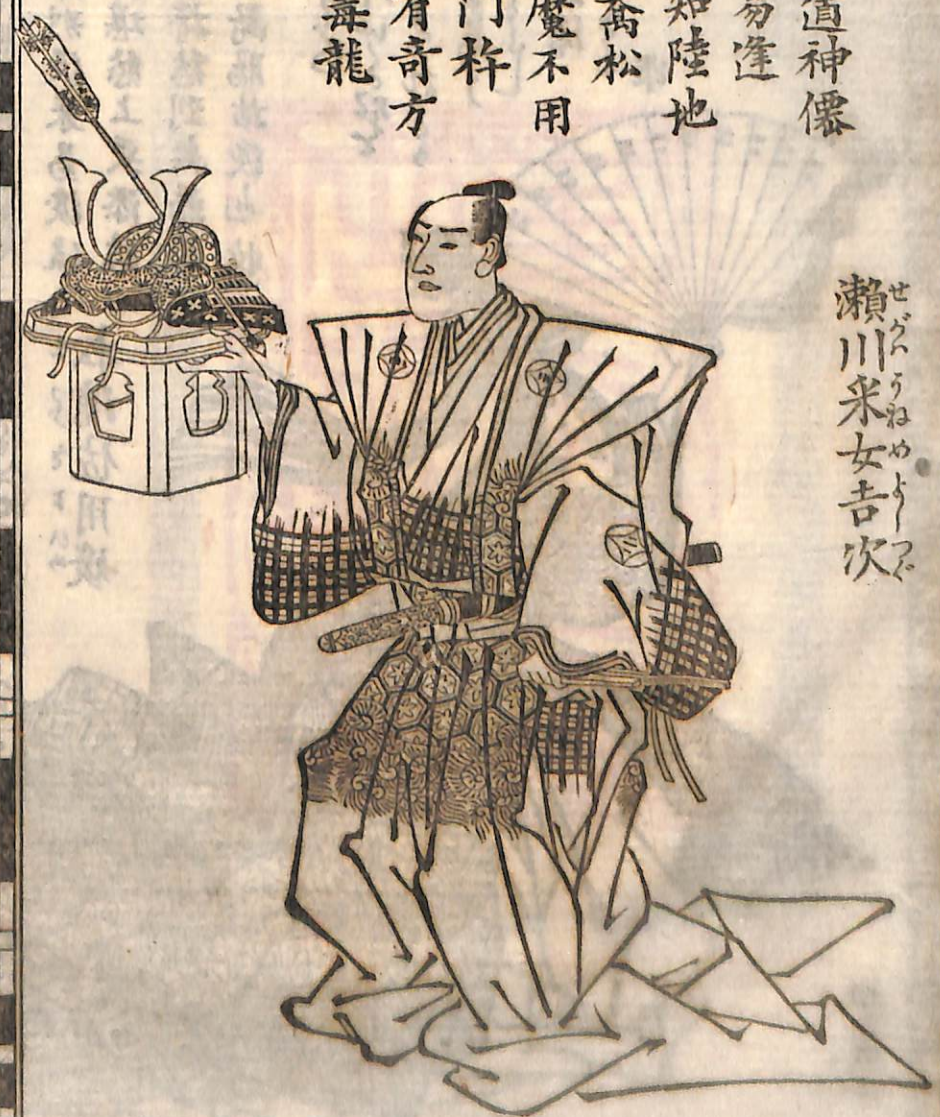 道神僊
易逢
知陸地
喬松
魔不用
門杵
有奇方
毒龍
瀬川采女吉次
せがハうねめよしつぐ